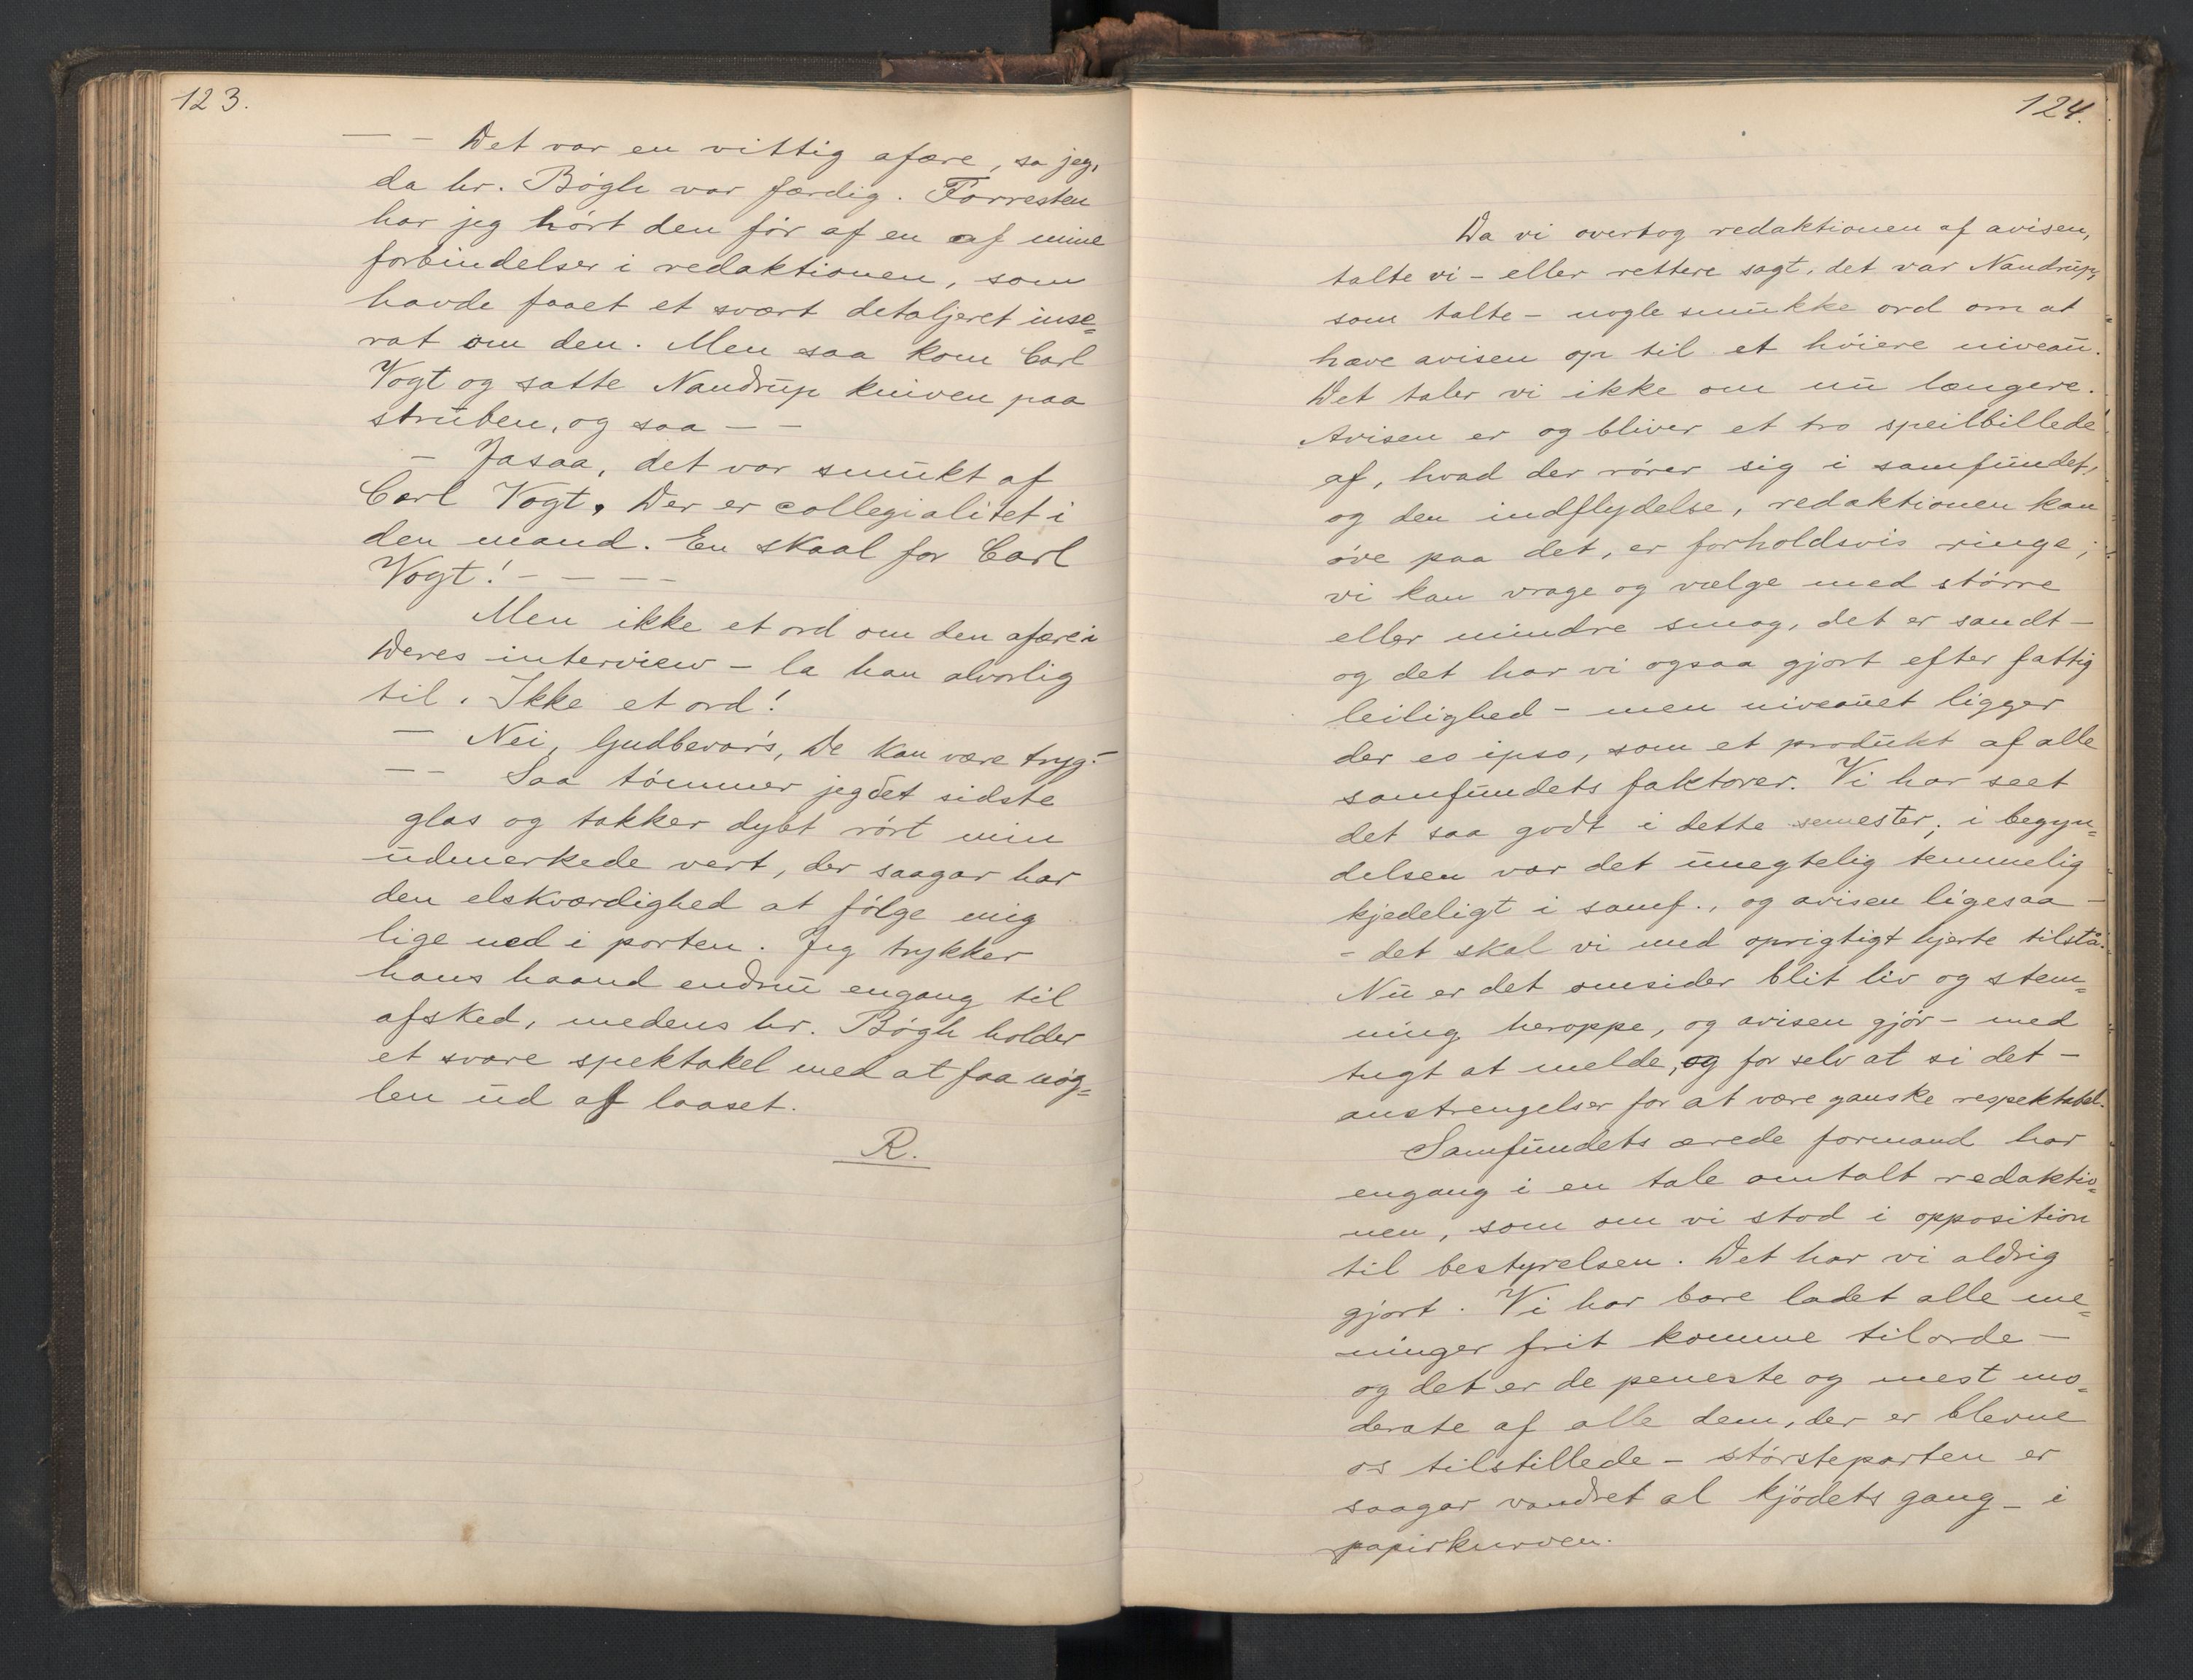 123.
— – Det var en vittig afære, sa jeg,
da hr. Bøgh var færdig. Forresten
har jeg hørt den før af en af mine
forbindelser i redaktionen, som
havde faaet et svært detaljeret inse=
rat om den. Men saa kom Carl
Vogt og satte Nandrup kniven paa
struben, og saa — —
– Jasaa, det var smukt af
Carl Vogt. Der er collegialitet i
den mand. En skaal for Carl
Vogt! – — — —
Men ikke et ord om den afære i
Deres interview – la han alvorlig
til. Ikke et ord!
— Nei, Gudbevar's, De kan være tryg. –
— — Saa tømmer jeg det sidste
glas og takker dybt rørt min
udmerkede vert, der saagar har
den elskværdighed at følge mig
lige ned i porten. Jeg trykker
hans haand endnu engang til
afsked, medens hr. Bøgh holder
et svare spektakel med at faa nøg=
len ud af laaset.
R.
124.
Da vi overtog redaktionen af avisen,
talte vi – eller rettere sagt, det var Nandrup,
som talte – nogle smukke ord om at
hæve avisen op til et høiere niveau.
Det taler vi ikke om nu længere.
Avisen er og bliver et tro speilbillede
af, hvad der rører sig i samfundet,
og den indflydelse, redaktionen kan
øve paa det, er forholdsvis ringe;
vi kan vrage og vælge med større
eller mindre smag, det er sandt –
og det har vi ogsaa gjort efter fattig
leilighed – men niveauet ligger
der eo ipso, som et produkt af alle
samfundets faktorer. Vi har seet
det saa godt i dette semester; i begyn=
delsen var det unegtelig temmelig
kjedeligt i samf., og avisen ligesaa –
– det skal vi med oprigtigt hjerte tilstå.
Nu er det omsider blit liv og stem=
ning heroppe, og avisen gjør – med
tugt at melde, og for selv at si det –
anstrengelser for at være ganske respektabel.
Samfundets ærede formand har
engang i en tale omtalt redaktio=
nen, som om vi stod i opposition
til bestyrelsen. Det har vi aldrig
gjort. Vi har bare ladet alle me=
ninger frit komme tilorde –
og det er de peneste og mest mo=
derate af alle dem, der er blevne
os tilstillede – størsteparten er
saagar vandret al kjødets gang – i
papirkurven.